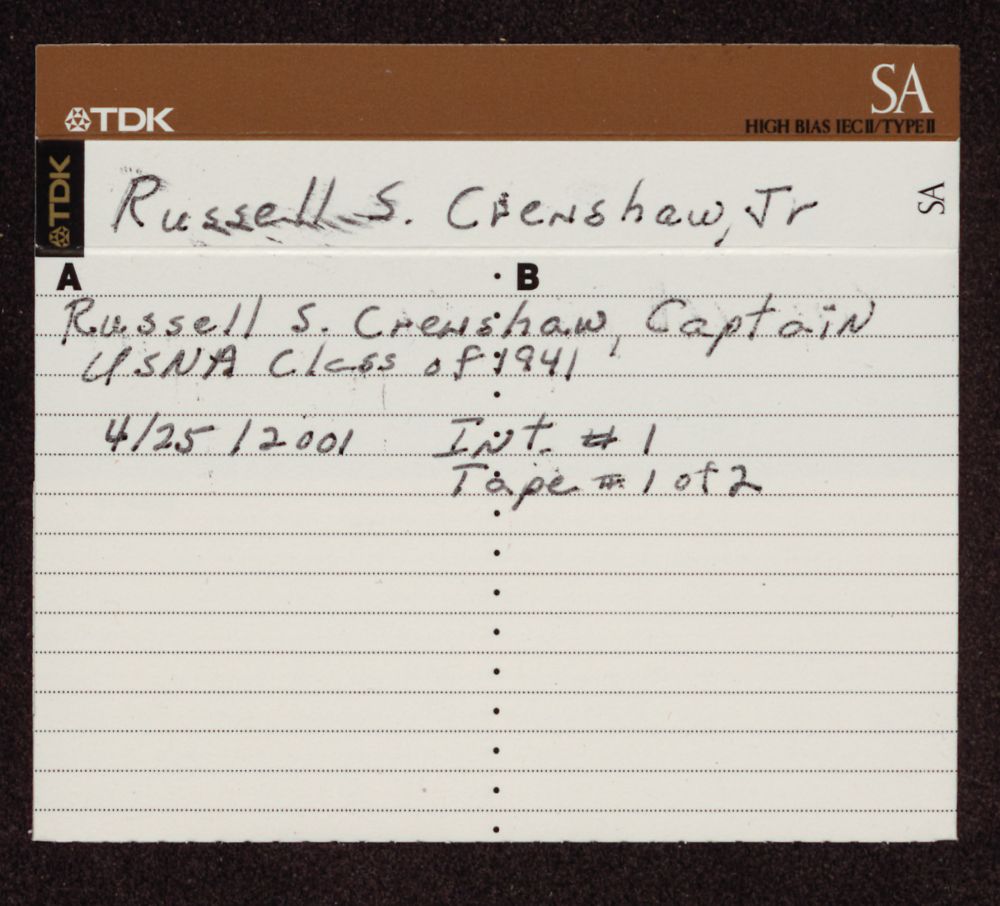 TDK
SA
HIGH BIAS IECII/TYPEII
TDK
Russell S. Crenshaw, Jr
SA
A B
Russell S. Crenshaw, Captain
USNA Class of 1941
4/25/2001 Int. # 1
Tape # 1 of 2